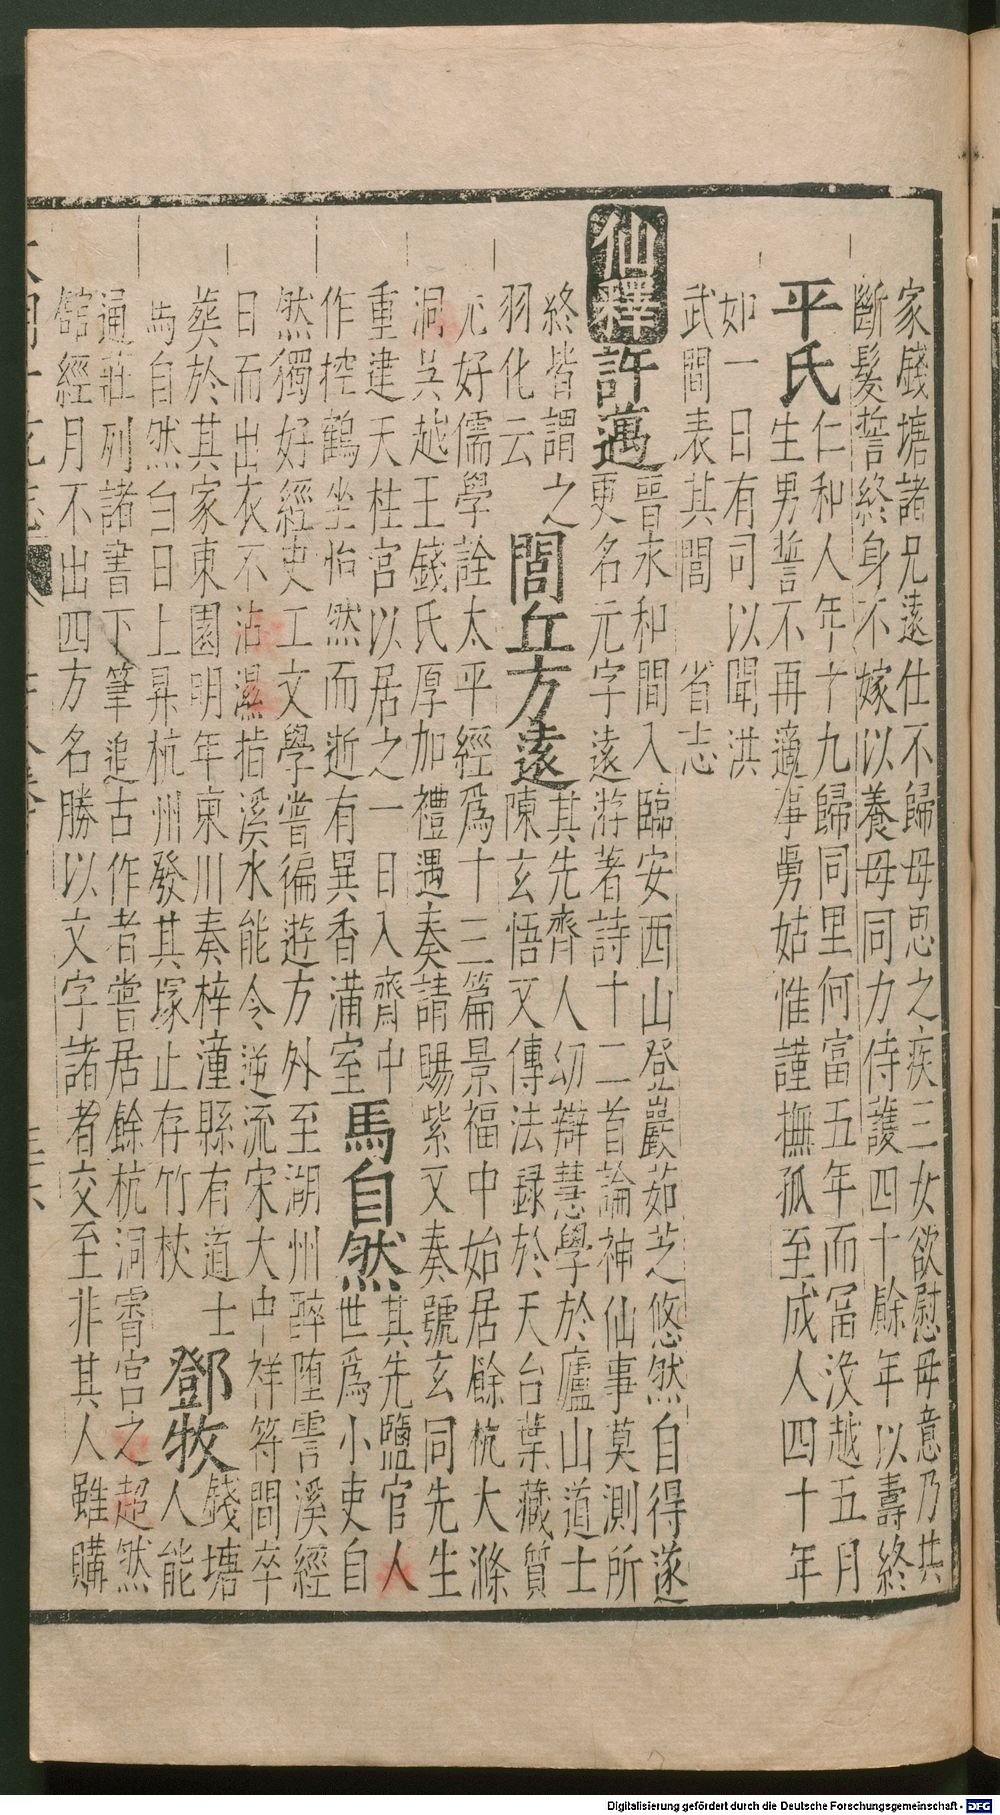 家錢塘諸兄遠仕不歸母思之疾三女欲慰母意乃共
斷髮誓終身不嫁以養母同力侍護四十餘年以壽終
平氏仁和人年十九歸同里何富五年而富沒越五月
生男誓不再適事舅姑惟謹撫孤至成人四十年
如一日有司以聞洪
武間表其閭 省志
仙釋許邁晉永和間入臨安西山登巖茹芝悠然自得遂
更名元字遠游著詩十二首論神仙事莫測所
終皆謂之
羽化云
閭丘方遠其先齊人幼辯慧學於廬山道士
陳玄悟又傳法籙於天台葉藏質
尤好儒學詮太平經為十三篇景福中始居餘杭大滌
洞吳越王錢氏厚加禮遇奏請賜紫又奏號玄同先生
重建天柱宮以居之一日入齋中
作控鶴坐怡然而逝有異香滿室
馬自然其先鹽官人
世為小吏自
然獨好經史工文學嘗徧遊方外至湖州醉墮霅溪經
日而出衣不沾濕指溪水能令逆流宋大中祥符間卒
葬於其家東園明年東川奏梓潼縣有道士
馬自然白日上昇杭州發其塚止存竹杖
鄧牧錢塘
人能
通莊列諸書下筆追古作者嘗居餘杭洞霄宮之超然
舘經月不出四方名勝以文字諸者交至非其人雖購
Digitalisierung gefördert durch die Deutsche Forschungsgemeinschaft - DFG